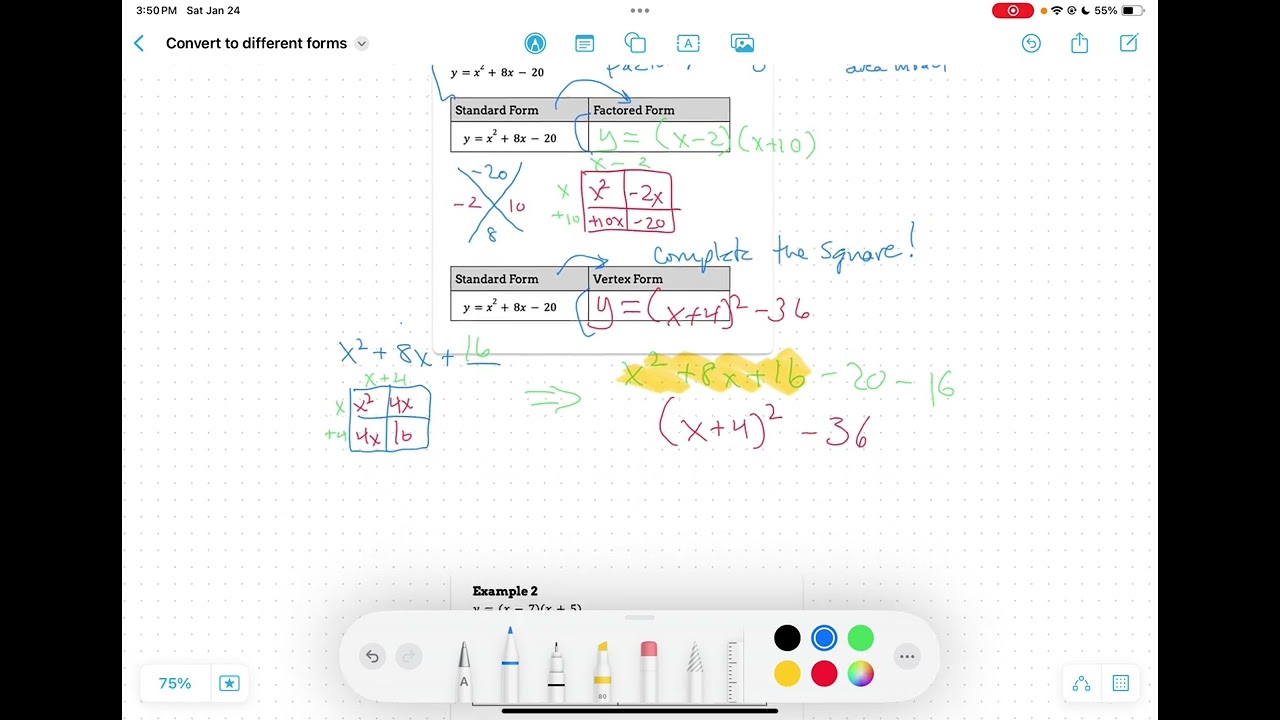 3:50 PM Sat Jan 24
55%
Convert to different forms
y = x² + 8x − 20
area model
Standard Form Factored Form
y = x² + 8x − 20 y = (x−2)(x+10)
x − 2
−20
x x² −2x
−2 10
+10 +10x −20
8
Complete the Square!
Standard Form Vertex Form
y = x² + 8x − 20 y = (x+4)² −36
x² + 8x + 16
x²+8x+16 −20 −16
x+4
x x² 4x
⇒
(x+4)² −36
+4 4x 16
Example 2
y = (x − 7)(x + 5)
A
80
75%